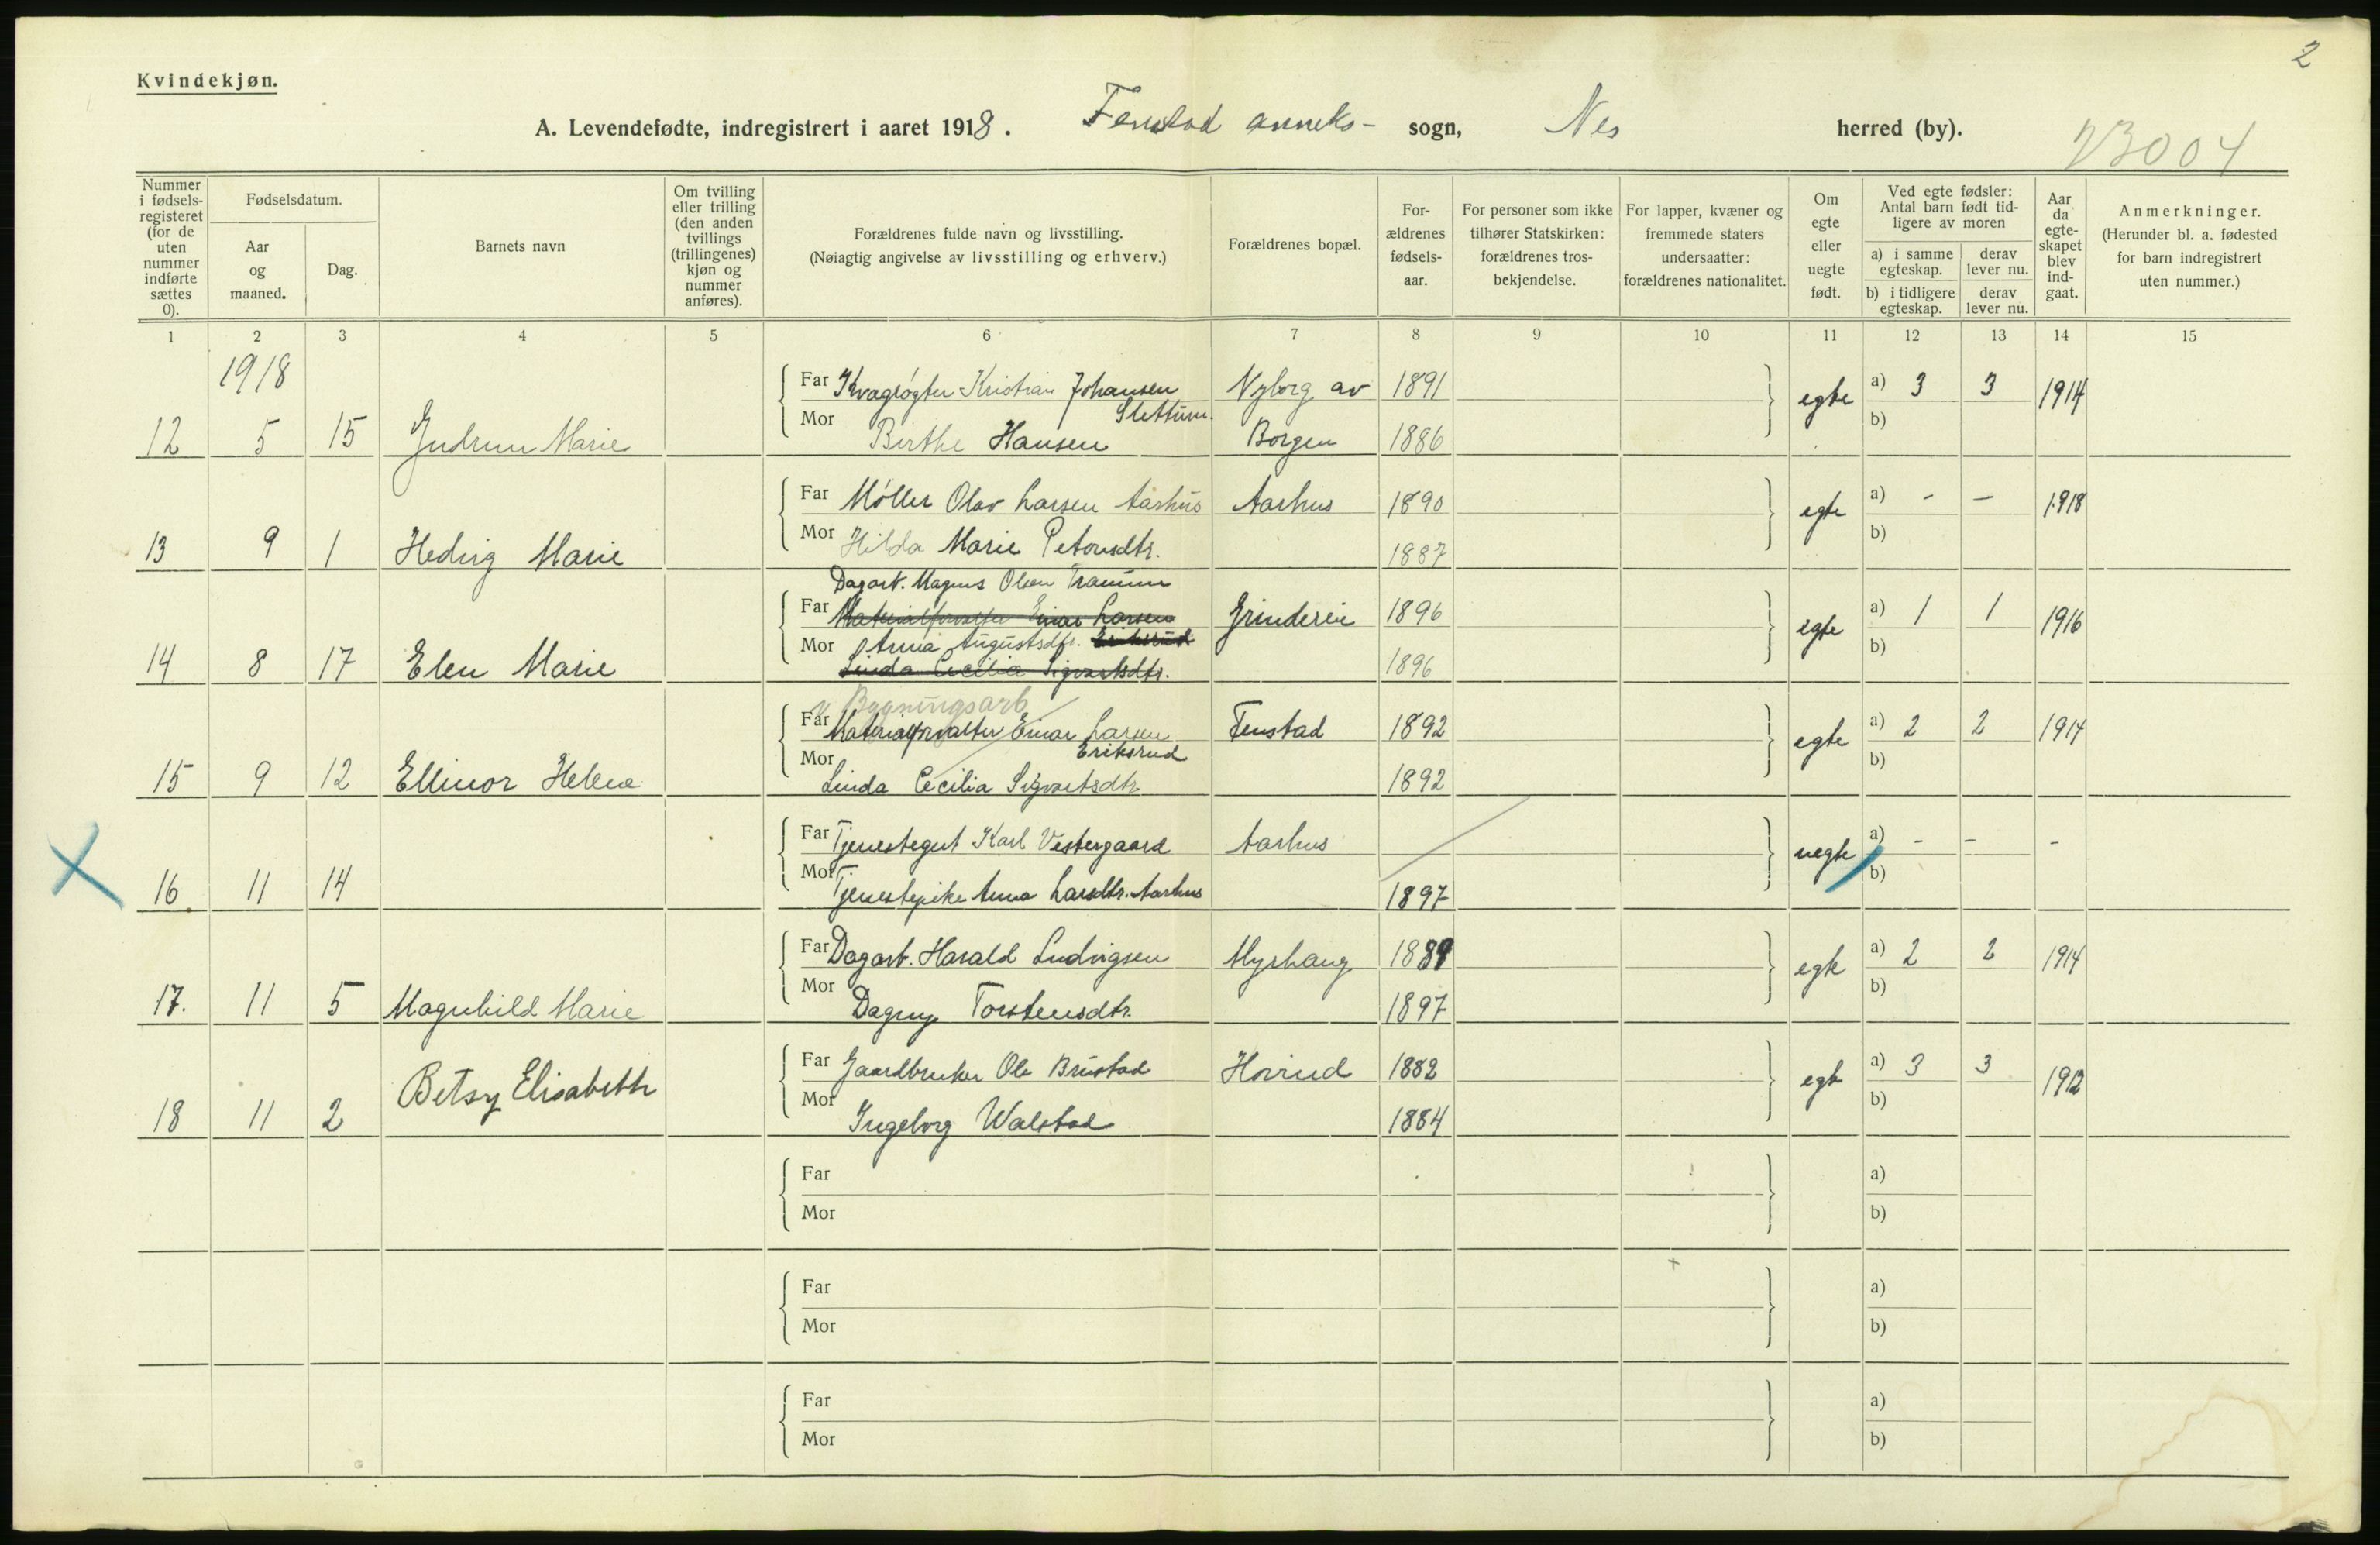 2
Kvindekjøn.
A. Levendefødte, indregistrert i aaret 1918. Fenstad anneks- sogn, Nes herred (by).
23004
Nummer i fødsels-registeret (for de uten nummer indførte sættes 0).
Fødselsdatum.
Aar og maaned.
Dag.
Barnets navn
Om tvilling eller trilling (den anden tvillings (trillingenes) kjøn og nummer anføres).
Forældrenes fulde navn og livsstilling.
(Nøiagtig angivelse av livsstilling og erhverv.)
Forældrenes bopæl.
For-ældrenes fødsels-aar.
For personer som ikke tilhører Statskirken: forældrenes tros-bekjendelse.
For lapper, kvæner og fremmede staters undersaatter: forældrenes nationalitet.
Om egte eller uegte født.
Ved egte fødsler: Antal barn født tid-ligere av moren
a) i samme egteskap.
derav lever nu.
b) i tidligere egteskap.
derav lever nu.
Aar da egte-skapet blev ind-gaat.
Anmerkninger.
(Herunder bl. a. fødested for barn indregistrert uten nummer.)
1 2 3 4 5 6 7 8 9 10 11 12 13 14 15
1918
Far Kvægrøgter Kristian Johansen Nyborg av 1891 egte a) 3 3 1914
Slettum.
12 5 15 Gudrun Marie Mor Birthe Hansen Borgen 1886 b)
Far Møller Olav Larsen Aarhus Aarhus 1890 egte a) - - 1918
13 9 1 Hedvig Marie Mor Hilda Marie Petersdtr. 1887 b)
Dagarb. Magnus Olsen
Far Materialforvalter Einar Larsen Grindereie 1896 egte a) 1 1 1916
Mor Anna Augustsdtr. Eriksrud b)
14 8 17 Elen Marie Linda Cecilia Sigvartsdtr. 1896
Bygningsarb
Far Materialforvalter Einar Larsen Fenstad 1892 egte a) 2 2 1914
Eriksrud
15 9 12 Ellinor Helene Mor Linda Cecilia Sigvartsdtr 1892 b)
Far Tjenestegut Karl Vestergaard Aarhus uegte a) - - -
16. 11 14 Mor Tjenestepike Anna Larsdtr. Aarhus 1897 b)
Far Dagarb. Harald Ludvigsen Myrhaug 1889 egte a) 2 2 1914
17. 11 5 Magnhild Marie Mor Dagny Torstensdtr. 1897 b)
Far Gaardbruker Ole Brustad Horrud 1882 egte a) 3 3 1912
18 11 2 Betsy Elisabeth Mor Ingeborg Walstad 1884 b)
Far a)
Mor b)
Far a)
Mor b)
Far a)
Mor b)